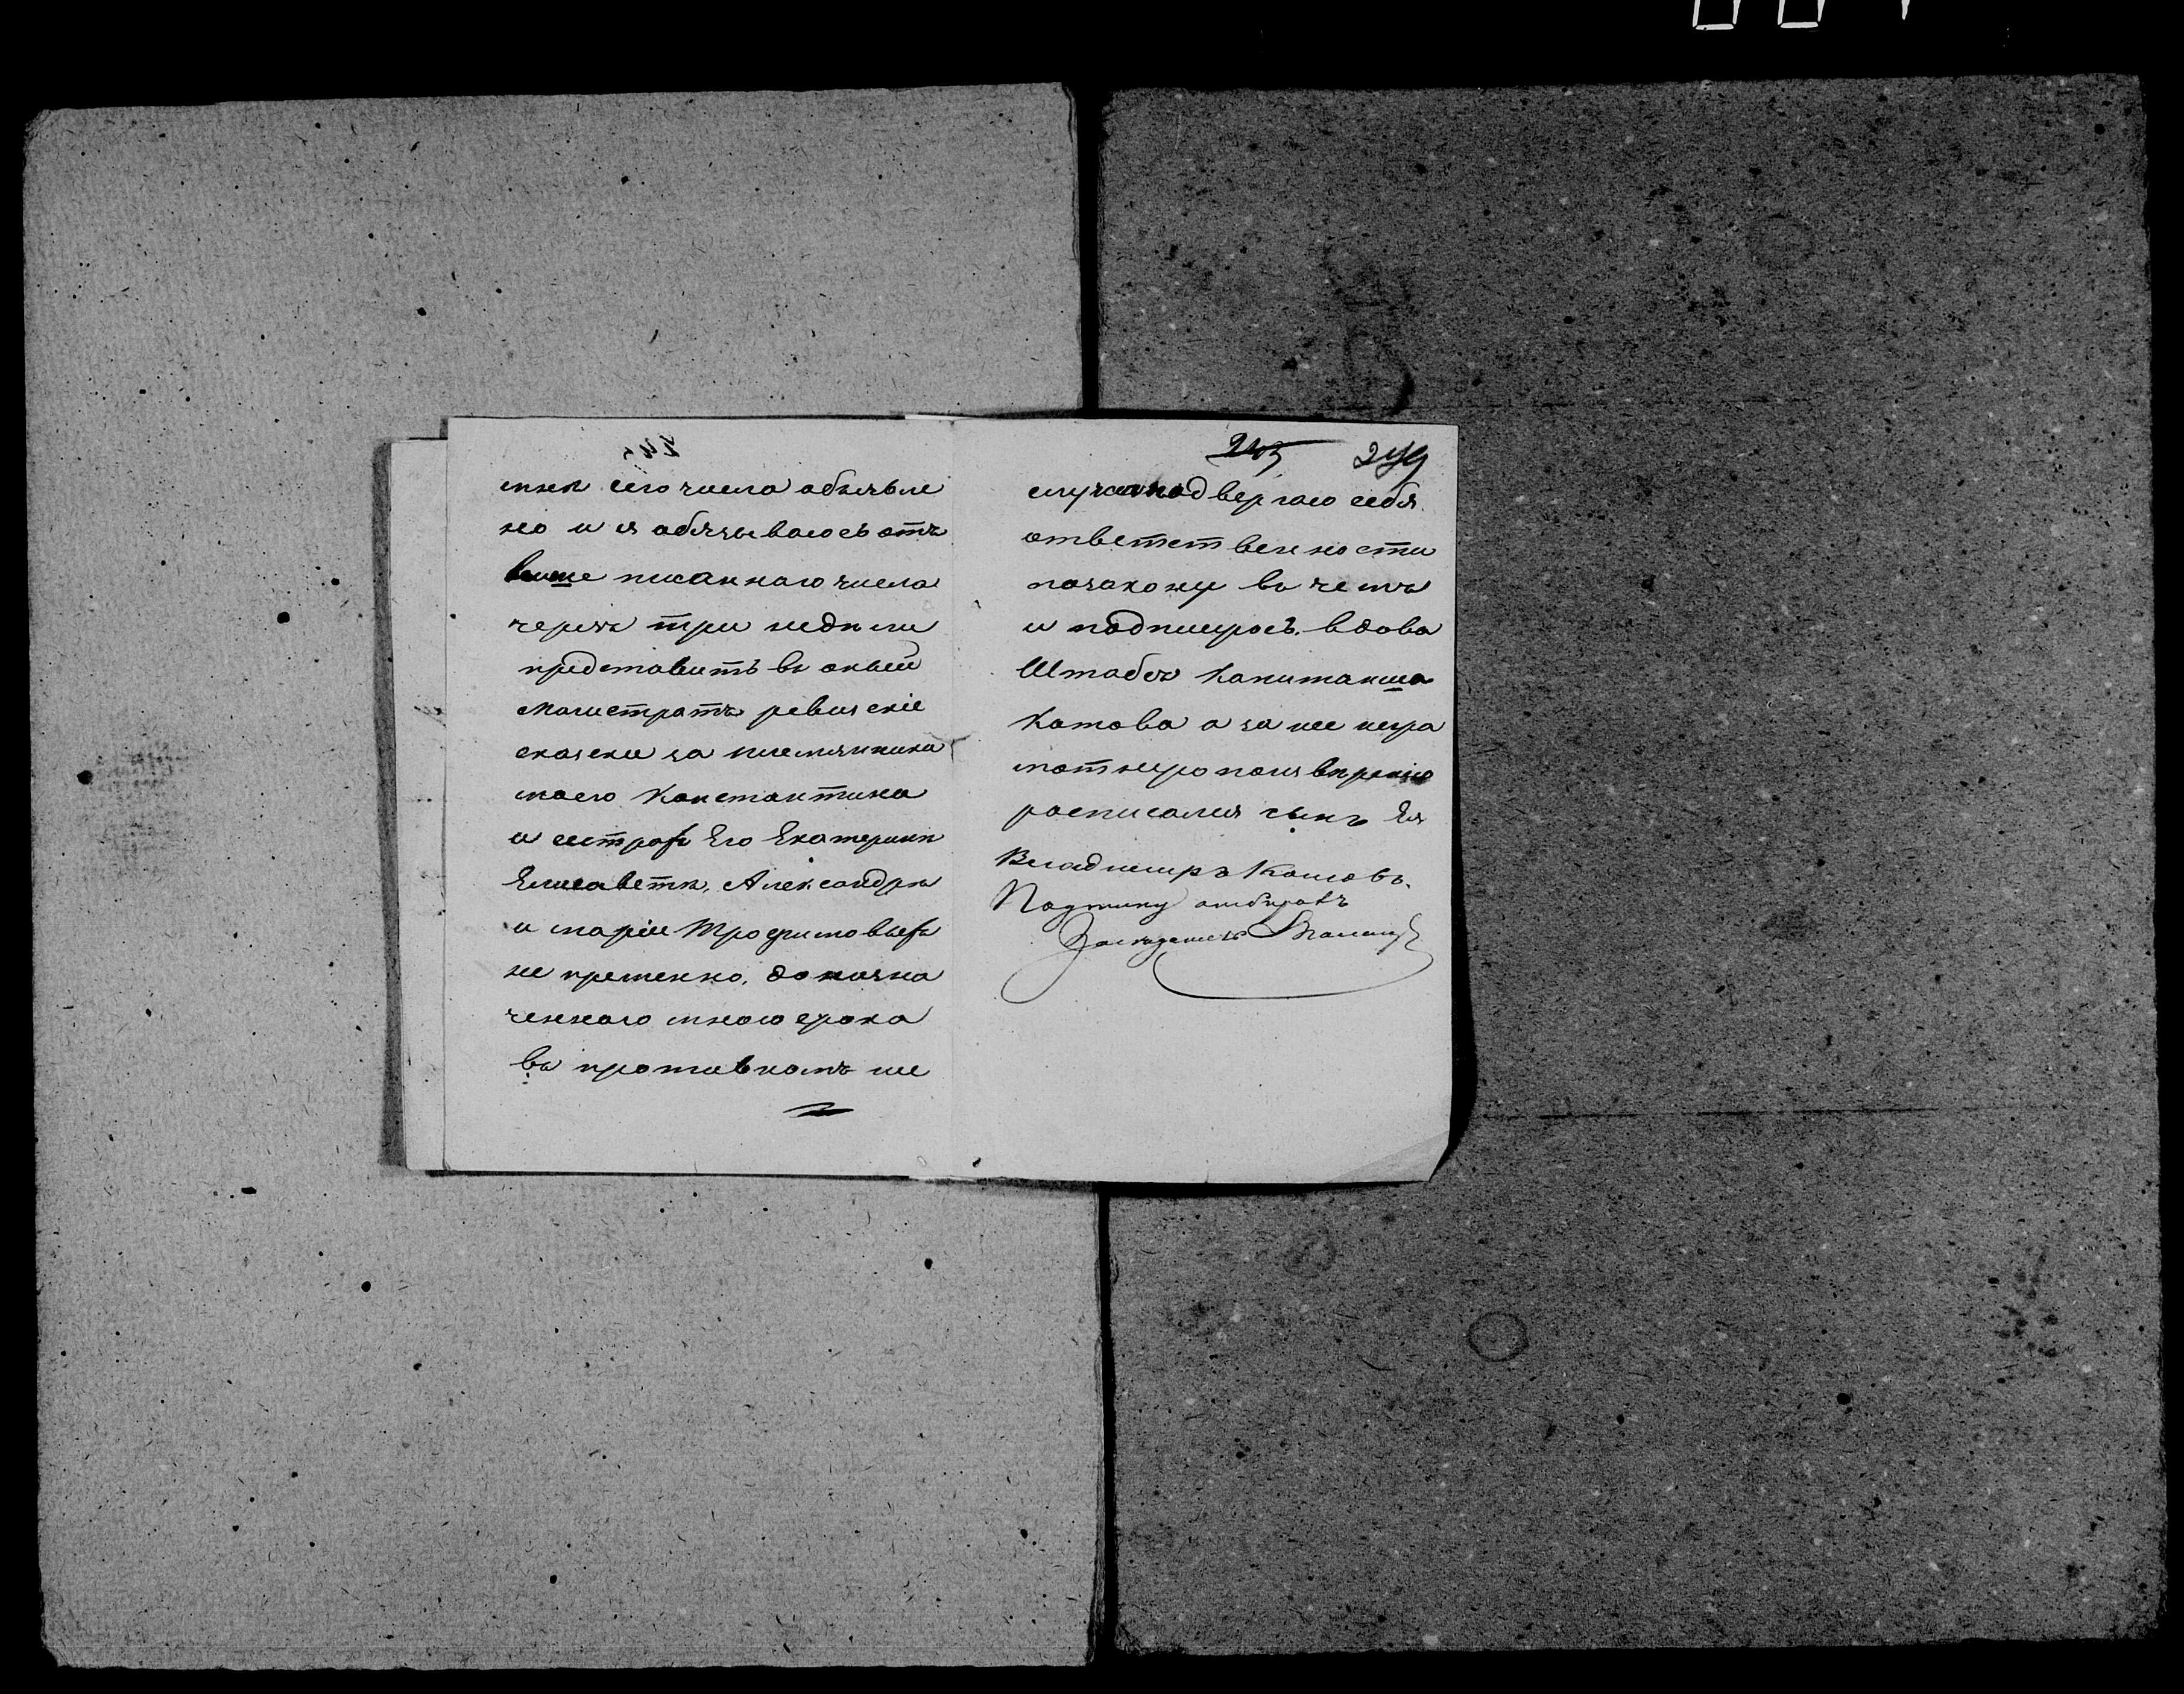 мнѣ сего числа объявле
но и я обязываюсь отъ
выше писаннаго числа
черезъ три недѣли
представить въ оный
Магистратъ ревизскіе
сказки за племянника
моего Константина
и сестръ Его Екатерины
Елисаветы, Александры
и маріи Трофимовыхъ
не пременно, до назна
ченнаго мною срока
въ противномъ же
243 249
случаи подвергаю себя
ответственности
позакону въ чемъ
и подпишусь. вдова
Штабсъ Капитанша
Котова а за нее негра
мотную по ея веренію
росписался сынъ Ея
Владимиръ Котовъ.
Подписку отбиралъ